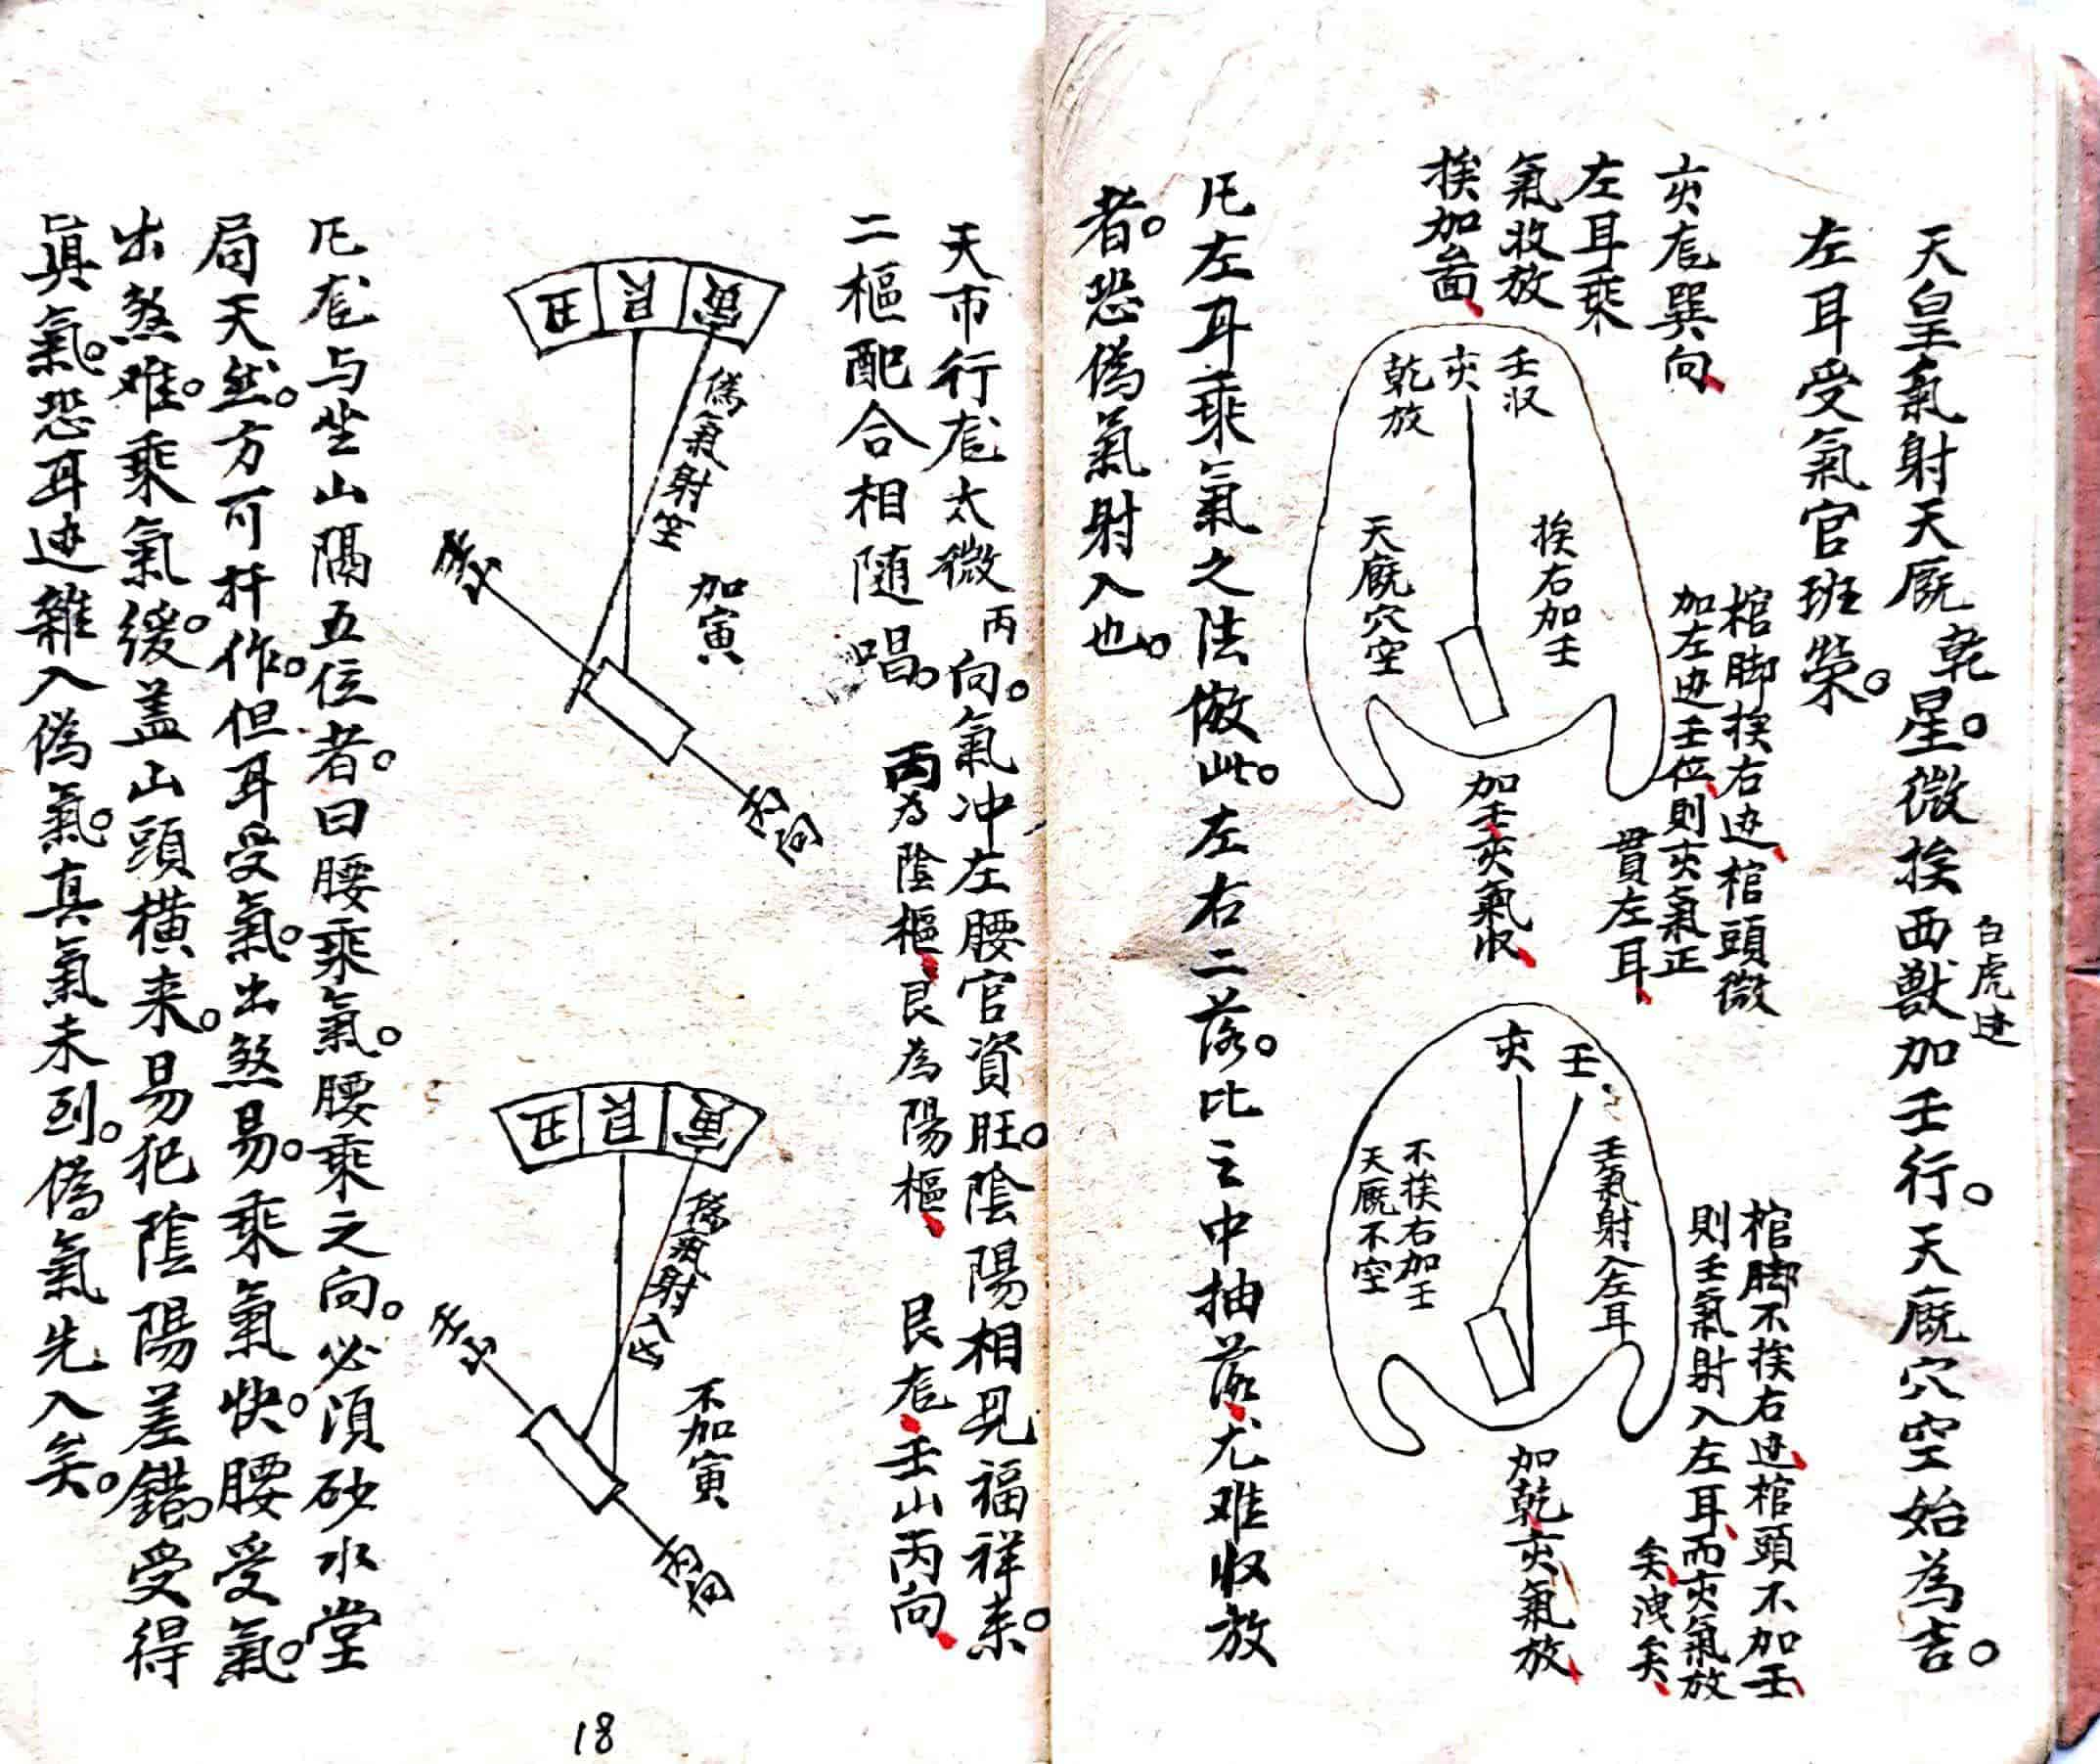 天皇氣射天厩乾星。微挨西獸加壬行。天厩穴空始為吉。
白虎边
左耳受氣官班榮。
亥龙巽向
左耳乘
氣收放
挨加畣
棺脚挨右边棺頭微
加左边壬位則亥氣正
貫左耳
壬収
亥
乾放
挨右加壬
天厩穴空
加壬亥氣収
棺脚不挨右边棺頭不加壬
則壬氣射入左耳而亥氣放
矣洩矣
壬
亥
壬氣射入左耳
不挨右加壬
天厩不空
加乾亥氣放
凡左耳乘氣之法倣此。左右二落。比之中抽落尤难収放
者。恐偽氣射入也。
天市行龙太微丙向。氣冲左腰官資旺。陰陽相見福祥来。
二樞配合相随唱。丙為陰樞艮為陽樞 艮龙壬山丙向
寅
艮
丑
偽氣射空
加寅
丙向
寅
艮
丑
偽氣射入
不加寅
壬山
丙向
凡龙与坐山隔五位者。曰腰乘氣。腰乘之向。必須砂水堂
局天然。方可扦作。但耳受氣。出煞易。乘氣快。腰受氣。
出煞难。乘氣缓。盖山頭横来。易犯陰陽差錯。受得
眞氣。恐耳边雜入偽氣。真氣未到。偽氣先入矣。
18